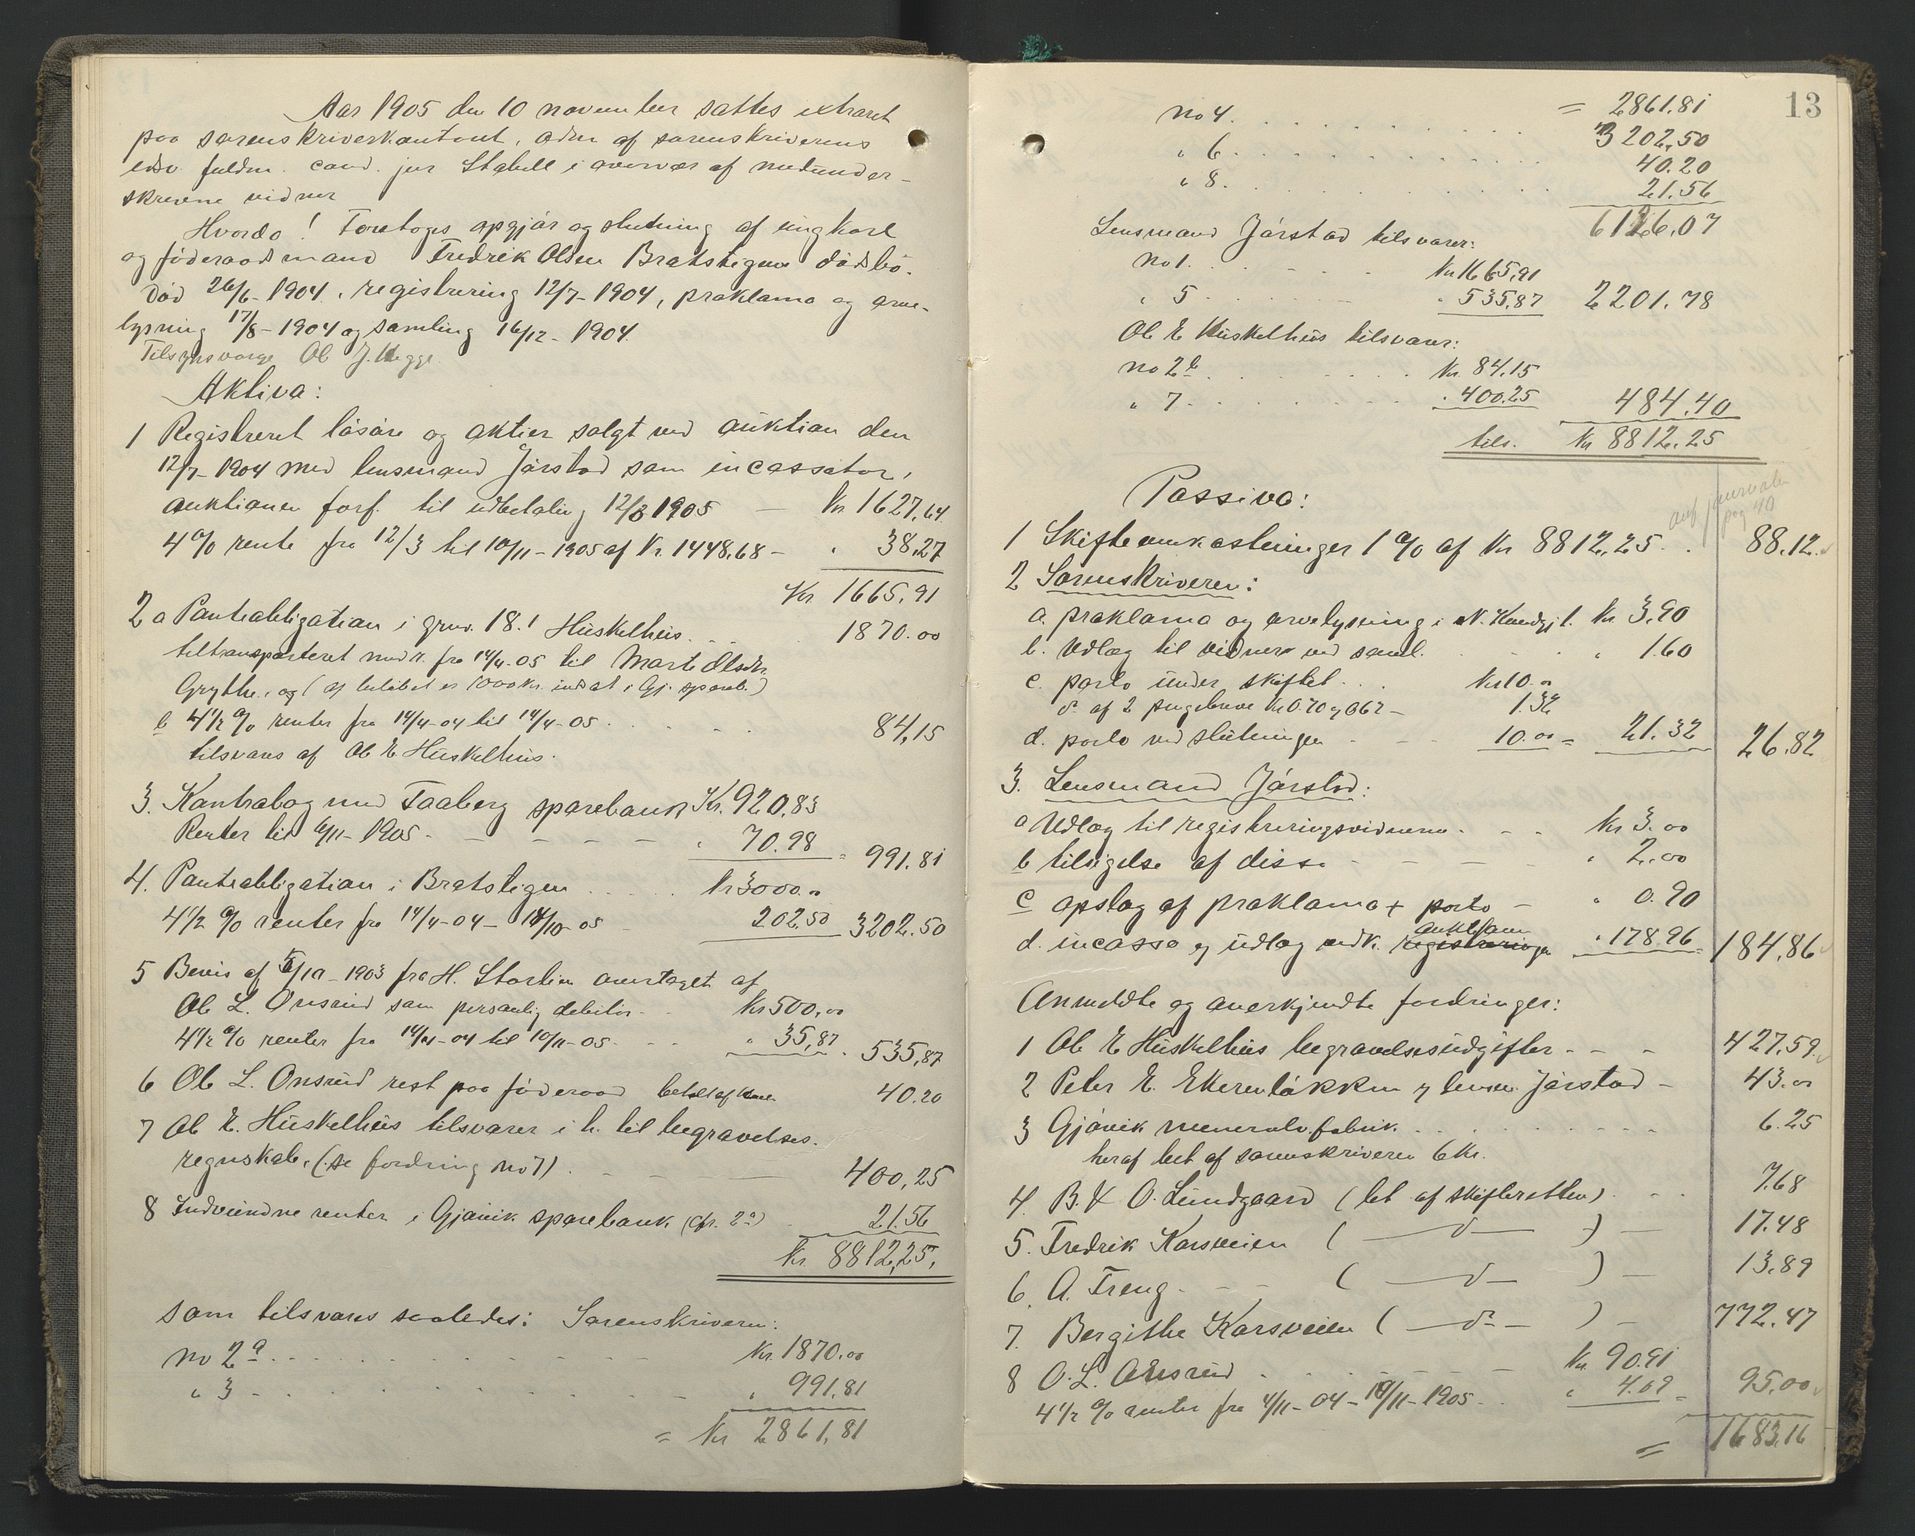 Aar 1905 den 10 november sattes extraret
paa sorenskriverkontoret, adm af sorenskriverens
edsv. fuldm. cand. jur Stabell i overvær af medunder-
skrevne vidner
Hvorda! Foretoges opgjør og slutning af ungkarl
og føderaadsmand Fredrik Olsen Bratstigens dødsbo.
Død 26/6-1904, registrering 12/7-1904, proklama og arve-
lysning 17/8-1904 og samling 16/12-1904.
Tilsynsvarge Ole J.
Aktiva:
1 Registreret løsøre og aktier solgt ved auktion den
12/7-1904 med lensmand Jørstad som incassator,
auktionen forf. til udbetaling 12/3 1905 - Kr 1627,64
4 % rente fra 12/3 til 10/11-1905 af Kr. 1448,68 - " 38,27
Kr 1665,91
2 a Pantobligation i grno. 18.1 Huskelhus. . . 1870.00
tiltransporteret medr. fra 14/4-05 til Marte Olsdtr.
Grythe, og (af beløbet er 1000 kr. indsat i Gj. spareb.)
b 4 1/2 % renter fra 14/4-04 til 14/4-05 . . . . 84,15
tilsvares af Ole E Huskelhus.
3. Kontrabog med Faaberg sparebank Kr. 920,83
Renter til 6/11-1905 - - - - - " 70.98 = 991.81
4. Pantobligation i Bratstigen . . . . Kr 3000.00
4 1/2 % renter fra 14/4-04 - 14/10-05 - 202,50 3202.50
5 Bevis af 5/10-1903 fra H. Storlien overtaget af
Ole L. Onsrud som personlig debitor - - Kr 500,00
4 1/2 % renter fra 14/4-04 til 10/11-05 - . " 35,87 . 535,87
6 Ole L. Onsrud rest paa føderaad 40.20
7 Ole E. Huskelhus tilsvarer i h. til begravelses.
regnskab. (se fordring no 1) . - 400,25
8 Indvundne renter i Gjøvik sparebank (cfr. 2a) - 21.56
Kr. 8812,25.
som tilsvares saaledes: Sorenskriveren:
no 2a . . . . Kr. 1870.00
" 3 - . . . . " 991,81
= Kr 2861,81
13
= 2861.81
no 4. . . . . 3202,50
" 6 . . . . . 40.20
" 8. . . . . 21.56
6126,07
Lensmand Jørstad tilsvarer:
no 1. . . . Kr 1665,91
" 5 . . . . " 535,87 2201.78
Ole E Huskelhus tilsvarer:
no 2b . . . . Kr. 84.15
" 7 - . . . . " 400.25 484.40
tils. Kr 8812.25
Passiva:
anf. journalen
pag 40
1 Skifteomkostninger 1 % af Kr 8812,25 . . 88.12
2 Sorenskriveren:
a. proklama og arvelysning i N. Kundgj.t. Kr 3,90
b. Udlæg til vidner ved saml. . - . - " 1.60
c. porto under skiftet . . . Kr 10.00
do af 2 pengebreve Kr 0.70 og 0.62 - 1.32
d. porto ved slutningen - - - 10.00 = 21.32 26.82
3. Lensmand Jørstad:
a Udlæg til registreringsvidnerne . - - Kr 3.00
b tilsigelse af disse - - - - " 2.00
c opslag af proklama + porto - " 0.90
d. incasso og udlæg vedk. registreringen auktionen " 178.96 = 184,86
Anmeldte og anerkjendte fordringer:
1 Ole E Huskelhus begravelsesudgifter - - - 427,59
2 Peter E. Ekerenløkken v lensm. Jørstad - 43.00
3 Gjøvik mineralv. fabrik . . . . . 6.25
heraf bet af sorenskriveren 6 Kr.
4. B. & O. Lundgaard (bet af skifteretten) . - - 7.68
5. Fredrik Korsveien ( — do — ) — 17.48
6. A. Freng . - - ( — do — ) — 13.89
7. Bergithe Korsveien ( — do — ) — 772.47
8 O. L. Onsrud . . . . - Kr. 90.91
4 1/2 % renter fra 4/11-04 - 10/11-1905 . - " 4.09 = 95,00
= 1683,16